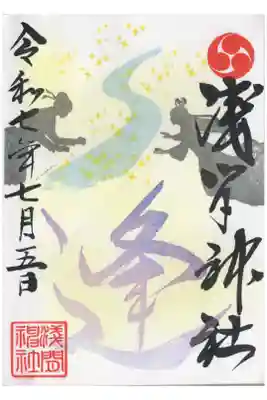 浅間神社
逢
令和七年七月五日
淺間
神社